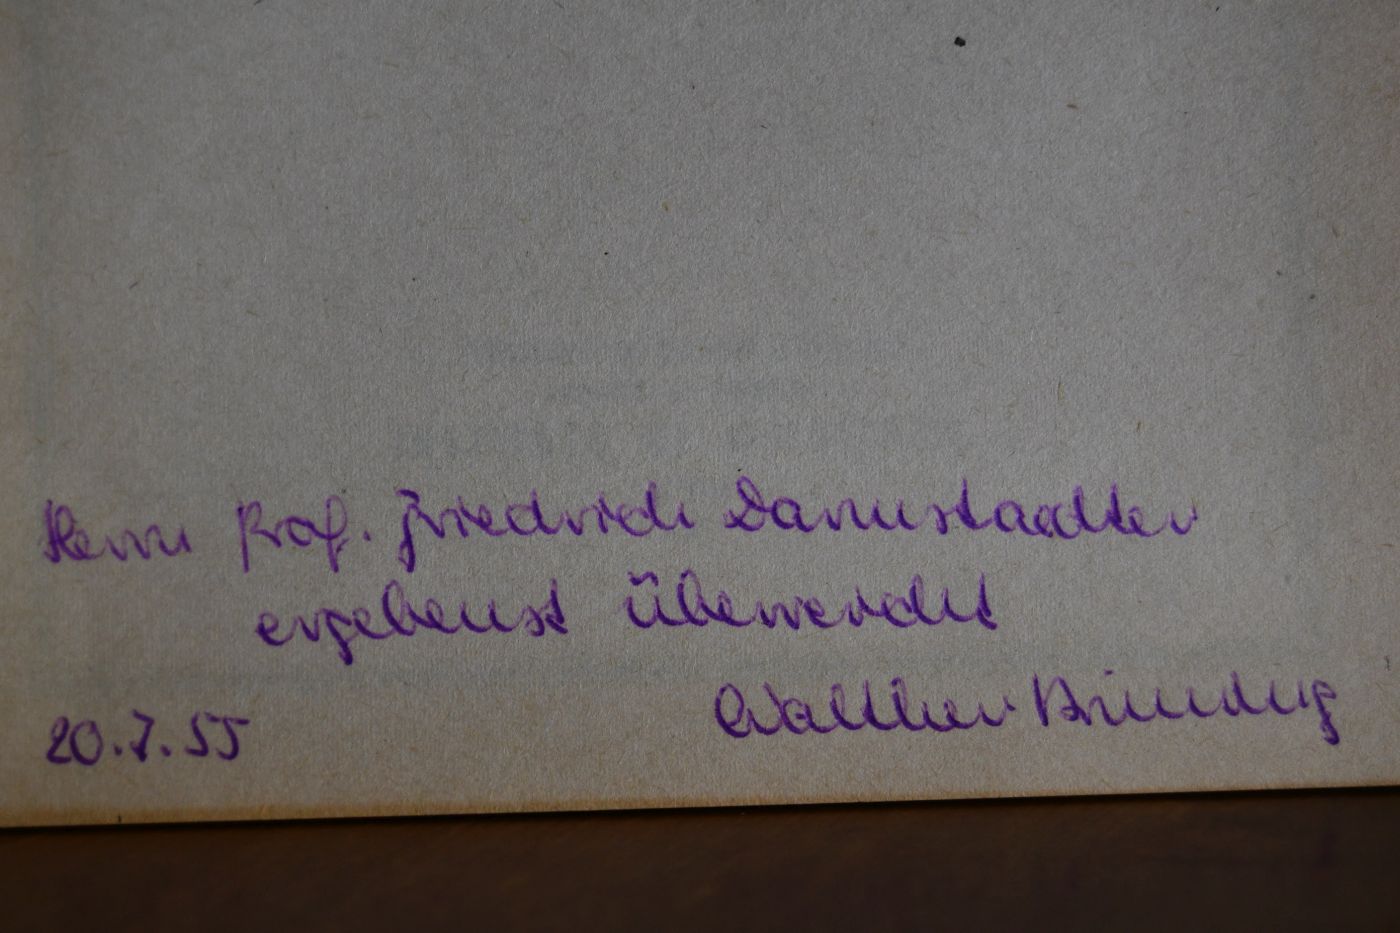 Herrn Prof. Friedrich Darmstaedter
ergebenst überreicht
Walther
20.7.55